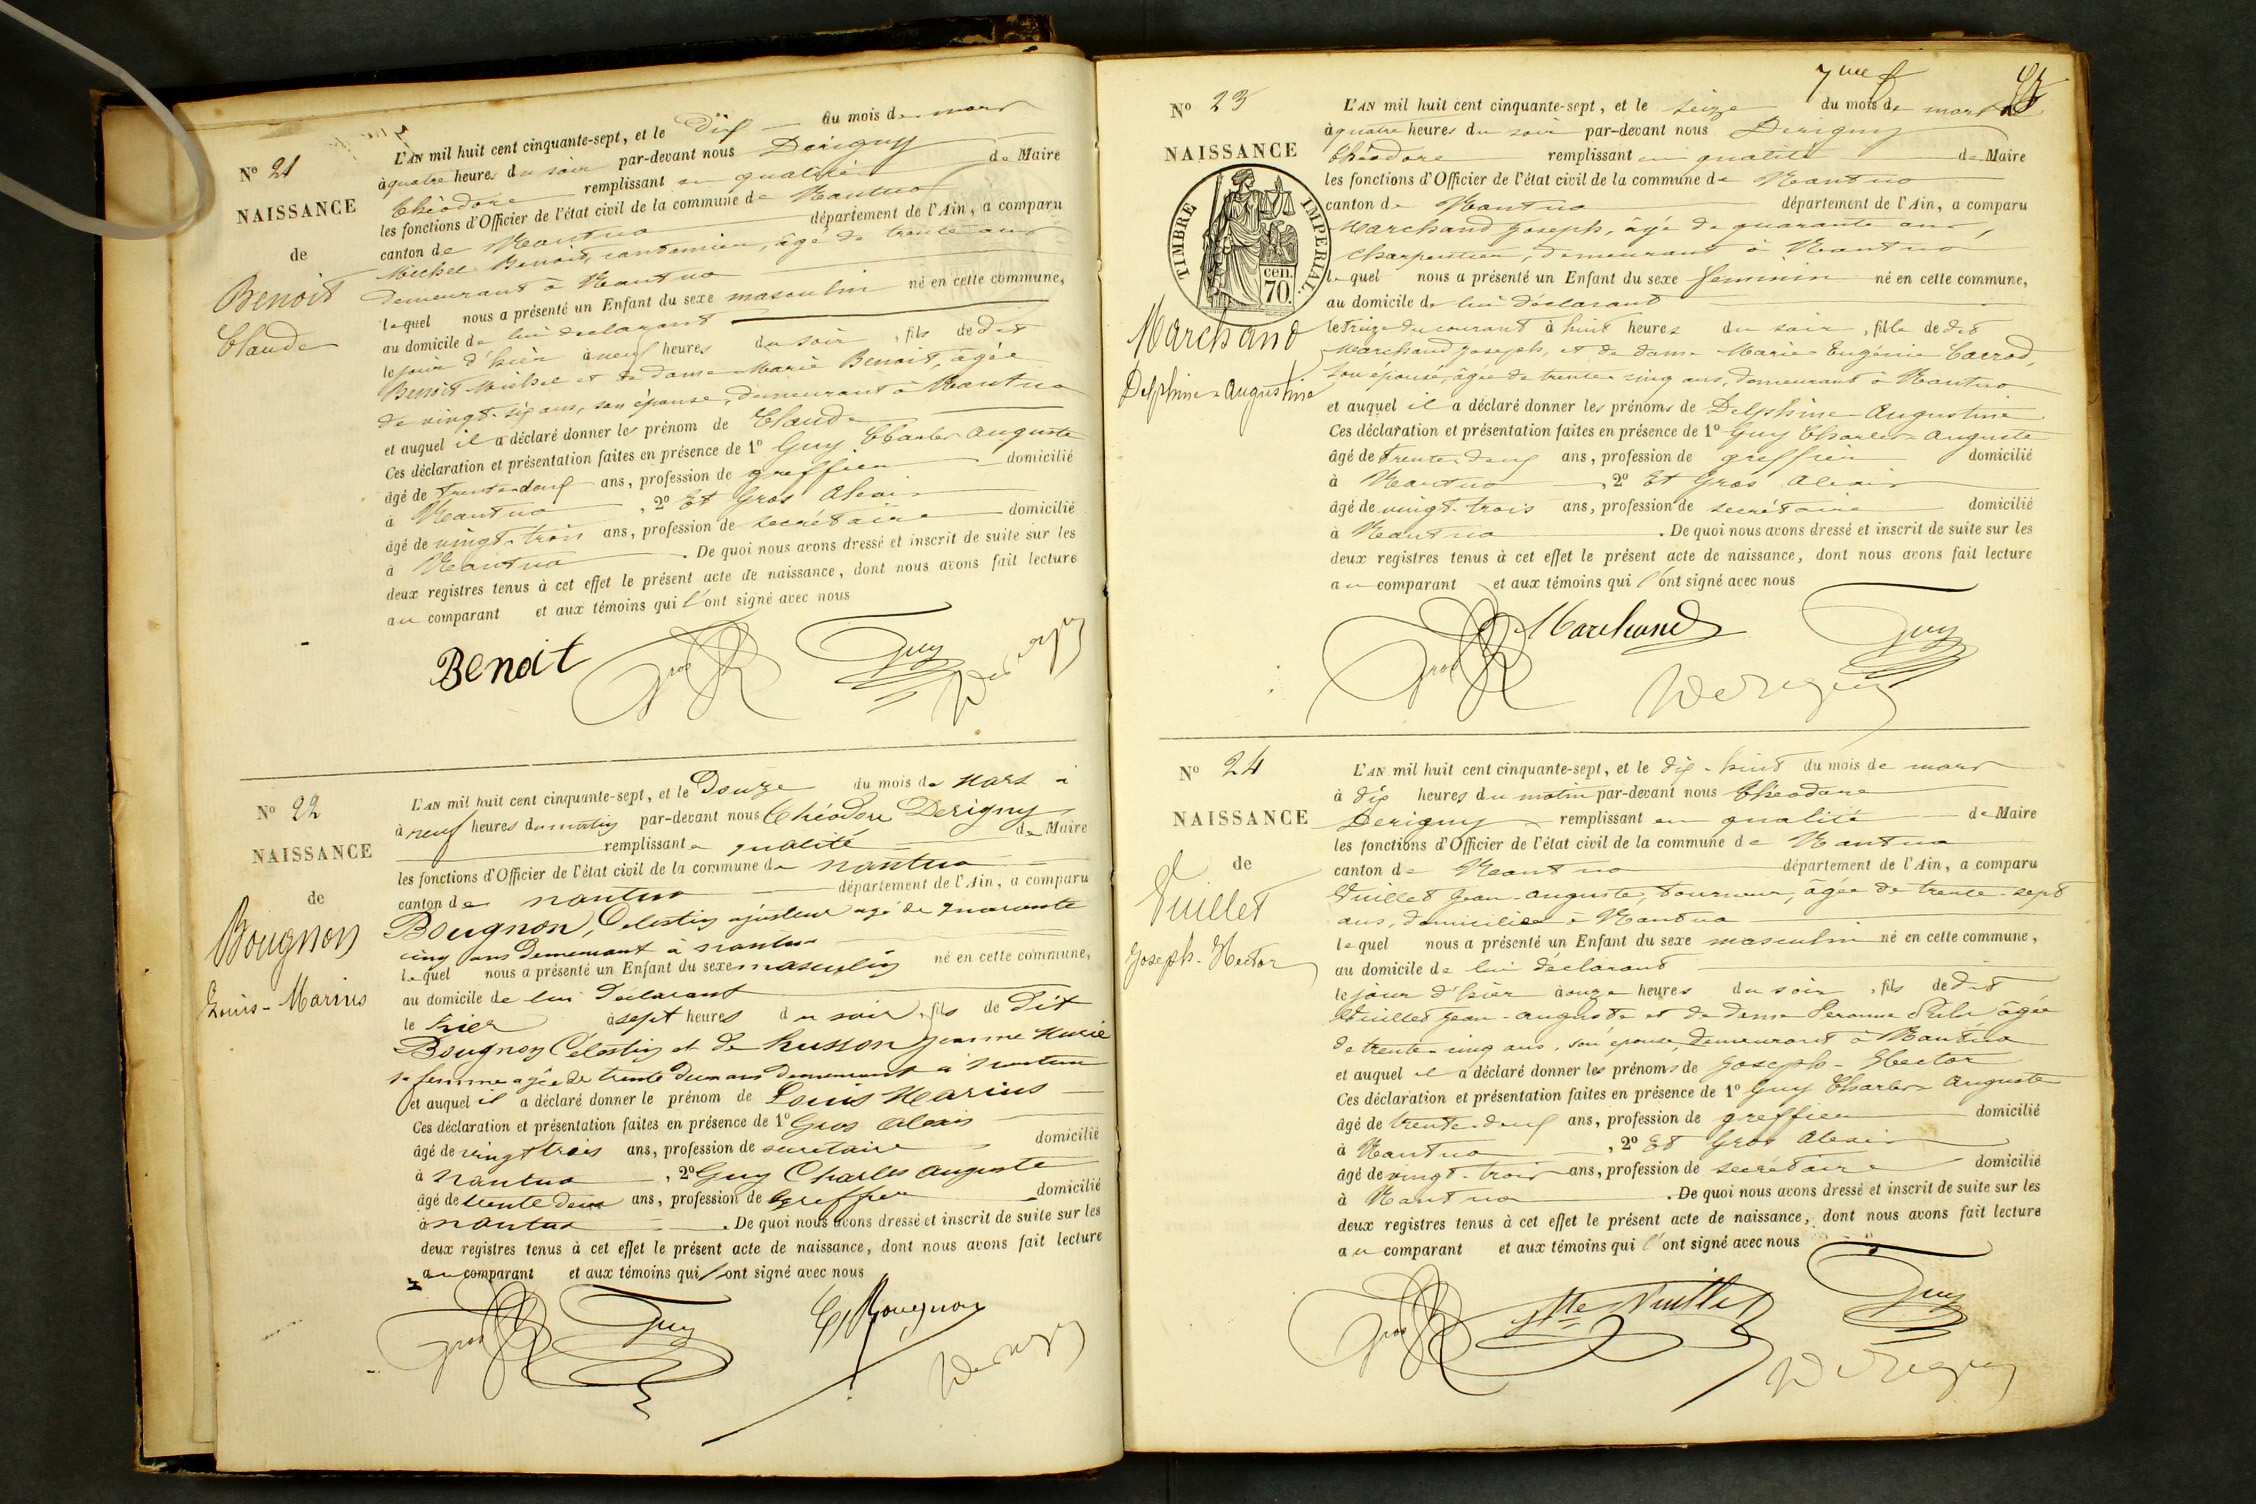 N° 21
NAISSANCE
de
Benoit
Claude
L'AN mil huit cent cinquante-sept, et le dix du mois de mars
à quatre heures du soir par-devant nous Derigny
Théodore remplissant en qualité de Maire
les fonctions d'Officier de l'état civil de la commune de Nantua
canton de Nantua département de l'Ain, a comparu
Michel Benoit, cantonnier, âgé de trente ans
demeurant à Nantua
lequel nous a présenté un Enfant du sexe masculin né en cette commune,
au domicile de lui déclarant
le jour d'hier à neuf heures du soir, fils de dit
Benoit Michel et de dame Marie Benoit, âgée
de vingt-six ans, son épouse, demeurant à Nantua
et auquel il a déclaré donner les prénom de Claude
Ces déclaration et présentation faites en présence de 1° Guy Charles Auguste
âgé de trente-deux ans, profession de greffier domicilié
à Nantua, 2° Et Gros Alexis
âgé de vingt-trois ans, profession de secrétaire domicilié
à Nantua. De quoi nous avons dressé et inscrit de suite sur les
deux registres tenus à cet effet le présent acte de naissance, dont nous avons fait lecture
au comparant et aux témoins qui l'ont signé avec nous
Benoit Gros Guy Derigny
N° 22
NAISSANCE
de
Bougnon
Louis-Marius
L'AN mil huit cent cinquante-sept, et le Douze du mois de Mars à
à neuf heures du matin par-devant nous Théodore Derigny
remplissant en qualité de Maire
les fonctions d'Officier de l'état civil de la commune de nantua
canton de nantua département de l'Ain, a comparu
Bougnon, Celestin ajusteur agé de quarante
cinq ans Demeurant à nantua
lequel nous a présenté un Enfant du sexe masculin né en cette commune,
au domicile de lui Déclarant
le hier à sept heures du soir, fils de Dit
Bougnon Célestin et de husson jeanne Marie
sa femme agée de trente deux ans demeurant à nantua
et auquel il a déclaré donner le prénom de Louis Marius
Ces déclaration et présentation faites en présence de 1° Gros Alexis
âgé de vingt trois ans, profession de secretaire domicilié
à nantua, 2° Guy Charles Auguste
âgé de trente deux ans, profession de Greffier domicilié
à nantua. De quoi nous avons dressé et inscrit de suite sur les
deux registres tenus à cet effet le présent acte de naissance, dont nous avons fait lecture
au comparant et aux témoins qui l'ont signé avec nous
Gros Guy Bougnon Derigny
7me f
N° 23
NAISSANCE
TIMBRE IMPERIAL.
cen. 70.
Marchand
Delphine-Augustine
L'AN mil huit cent cinquante-sept, et le seize du mois de mars
à quatre heures du soir par-devant nous Derigny
Théodore remplissant en qualité de Maire
les fonctions d'Officier de l'état civil de la commune de Nantua
canton de Nantua département de l'Ain, a comparu
Marchand Joseph, âgé de quarante ans,
charpentier, demeurant à Nantua
lequel nous a présenté un Enfant du sexe feminin né en cette commune,
au domicile de lui déclarant
le treize du courant à huit heures du soir, fille de dit
Marchand Joseph, et de dame Marie Eugénie
son épouse, âgée de trente-cinq ans, demeurant à Nantua
et auquel il a déclaré donner les prénoms de Delphine-Augustine
Ces déclaration et présentation faites en présence de 1° Guy Charles-Auguste
âgé de trente-deux ans, profession de greffier domicilié
à Nantua, 2° Et Gros Alexis
âgé de vingt-trois ans, profession de secrétaire domicilié
à Nantua. De quoi nous avons dressé et inscrit de suite sur les
deux registres tenus à cet effet le présent acte de naissance, dont nous avons fait lecture
au comparant et aux témoins qui l'ont signé avec nous
Gros Marchand Guy Derigny
N° 24
NAISSANCE
de
Vuillet
Joseph-Hector
L'AN mil huit cent cinquante-sept, et le dix-huit du mois de mars
à dix heures du matin par-devant nous Théodore
Derigny remplissant en qualité de Maire
les fonctions d'Officier de l'état civil de la commune de Nantua
canton de Nantua département de l'Ain, a comparu
Vuillet Jean-Auguste, tourneur, âgée de trente-sept
ans, domicilié à Nantua
lequel nous a présenté un Enfant du sexe masculin né en cette commune,
au domicile de lui déclarant
le jour d'hier à onze heures du soir, fils de dit
Vuillet Jean-Auguste et de dame âgée
de trente-cinq ans, son épouse, demeurant à Nantua
et auquel il a déclaré donner les prénoms de Joseph-Hector
Ces déclaration et présentation faites en présence de 1° Guy Charles-Auguste
âgé de trente-deux ans, profession de greffier domicilié
à Nantua, 2° Et Gros Alexis
âgé de vingt-trois ans, profession de secrétaire domicilié
à Nantua. De quoi nous avons dressé et inscrit de suite sur les
deux registres tenus à cet effet le présent acte de naissance, dont nous avons fait lecture
au comparant et aux témoins qui l'ont signé avec nous
Gros Vuillet Guy Derigny